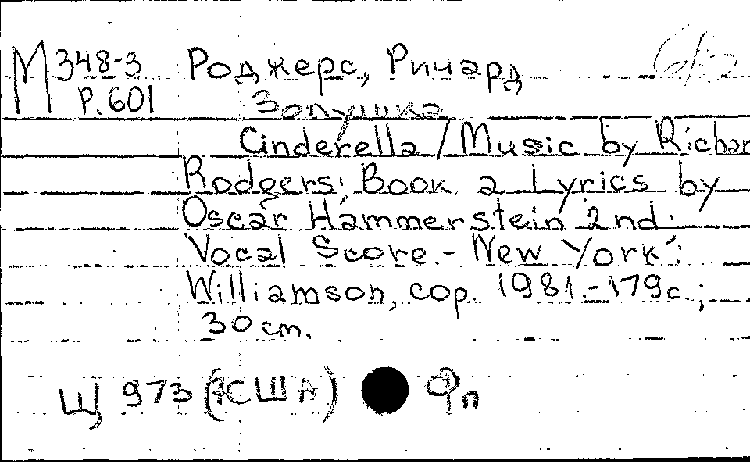 М 348-3 Роджерс, Ричард б/з
Р.601 Золушка
Cinderella / Music by Richar
Rodgers; Book a Lyrics by
Oscar Hammerstein 2nd.
Vocal Score. - New York:
Williamson, cop. 1981. - 179 с.;
30 cm.
Щ 973 (США) Фп